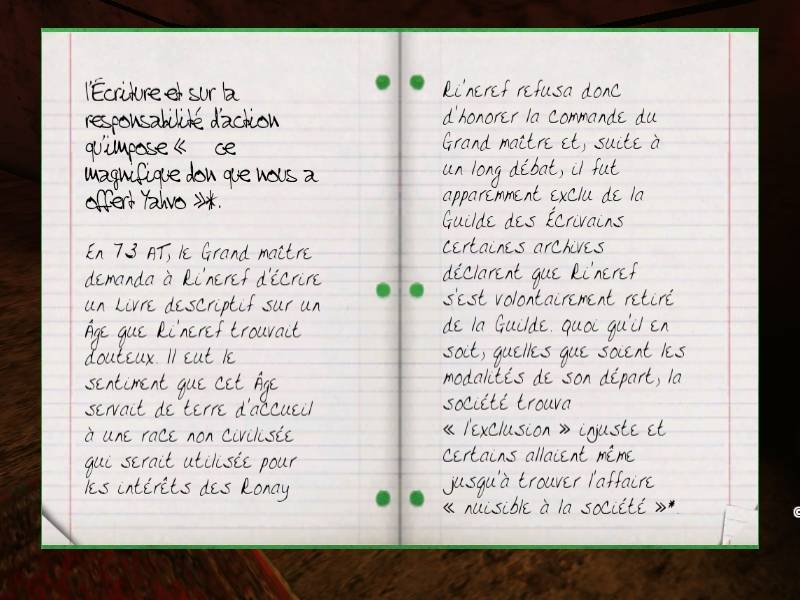 l'Écriture et sur la
responsabilité d'action
qu'impose « ce
magnifique don que nous a
offert Yahvo »*.
En 73 AT, le Grand maître
demanda à Ri'neref d'écrire
un Livre descriptif sur un
Âge que Ri'neref trouvait
douteux. Il eut le
sentiment que cet Âge
servait de terre d'accueil
à une race non civilisée
qui serait utilisée pour
les intérêts des Ronay
Ri'neref refusa donc
d'honorer la commande du
Grand maître et, suite à
un long débat, il fut
apparemment exclu de la
Guilde des Écrivains
certaines archives
déclarent que Ri'neref
s'est volontairement retiré
de la Guilde. Quoi qu'il en
soit, quelles que soient les
modalités de son départ, la
société trouva
« l'exclusion » injuste et
certains allaient même
jusqu'à trouver l'affaire
« nuisible à la société »*.
©